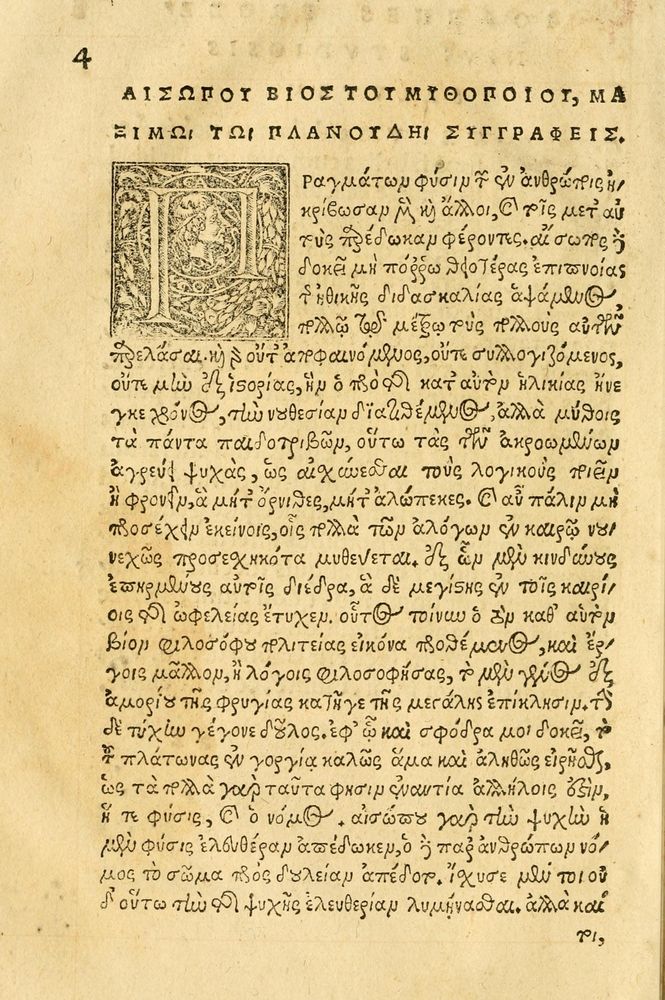 4
ΑΙΣΩΠΟΥ ΒΙΟΣ ΤΟΥ ΜΥΘΟΠΟΙΟΥ, ΜΑ
ΞΙΜΩι ΤΩι ΠΛΑΝΟΥΔΗι ΣΥΓΓΡΑΦΕΙΣ.
Πραγμάτων φύσιν τ̂ ἐν ἀνθρώποις ἠ-
κρίβωσαν μὲν καὶ ἄλλοι, καὶ τοῖς μετ αὐ
τοὺς παρέδωκαν φέροντες. αἴσωπος δὲ
δοκεῖ μὴ πόῤῥω θειοτέρας ἐπιπνοίας
τ̂ ἠθικῆς διδασκαλίας ἁψάμενος,
πολλῷ τῷ μέτρῳ τοὺς πολλοὺς αὐτῶν
παρελάσαι. καὶ γὰρ οὔτ ἀποφαινόμενος, οὔτε συλλογιζόμενος,
οὔτε μὴν ἐξ ἱστορίας, ἣν ὁ πρὸ τῆς κατ αὐτὸν ἡλικίας ἤνε
γκε χρόνος, τὴν νουθεσίαν διατιθέμενος, ἀλλὰ μύθοις
τὰ πάντα παιδοτριβῶν, οὕτω τὰς τῶν ἀκροωμένων
ἀγρεύει ψυχὰς, ὡς αἰσχύνεσθαι τοὺς λογικοὺς ποιεῖν
ἢ φρονεῖν, ἃ μήτ ὄρνιθες, μήτ ἀλώπεκες. καὶ αὖ πάλιν μὴ
προσέχειν ἐκείνοις, οἷς πολλὰ τῶν ἀλόγων ἐν καιρῷ νου-
νεχῶς προσεχηκότα μυθεύεται. ἐξ ὧν μὲν κινδύνους
ἐπηρμένους αὐτοῖς διέδρα, ἃ δὲ μεγίστης ἐν τοῖς καιρί-
οις τῆς ὠφελείας ἔτυχεν. οὗτος τοίνυν ὁ τὸν καθ' αὑτὸν
βίον φιλοσόφου πολιτείας εἰκόνα προθέμενος, καὶ ἔρ-
γοις μᾶλλον, ἢ λόγοις φιλοσοφήσας, τὸ μὲν γένος ἐξ
ἀμορίου τῆς φρυγίας κατῆγε τῆς μεγάλης ἐπίκλησιν. τὴν
δὲ τύχην γέγονε δοῦλος. ἐφ' ᾧ καὶ σφόδρα μοι δοκεῖ, τὸ
τ̂ πλάτωνος ἐν γοργίᾳ καλῶς ἅμα καὶ ἀληθῶς εἰρῆσθαι,
ὡς τὰ πολλὰ γὰρ ταῦτα φησὶν ἐναντία ἀλλήλοις ἐστὶν,
ἥ τε φύσις, καὶ ὁ νόμος. αἰσώπου γὰρ τὴν ψυχὴν ἡ
μὲν φύσις ἐλευθέραν ἀπέδωκεν, ὁ δὲ παρ ἀνθρώπων νό-
μος τὸ σῶμα πρὸς δουλείαν ἀπέδοτο. ἴσχυσε μέν τοι οὐ
δ οὕτω τὴν τῆς ψυχῆς ἐλευθερίαν λυμήνασθαι. ἀλλὰ καί
τοι,